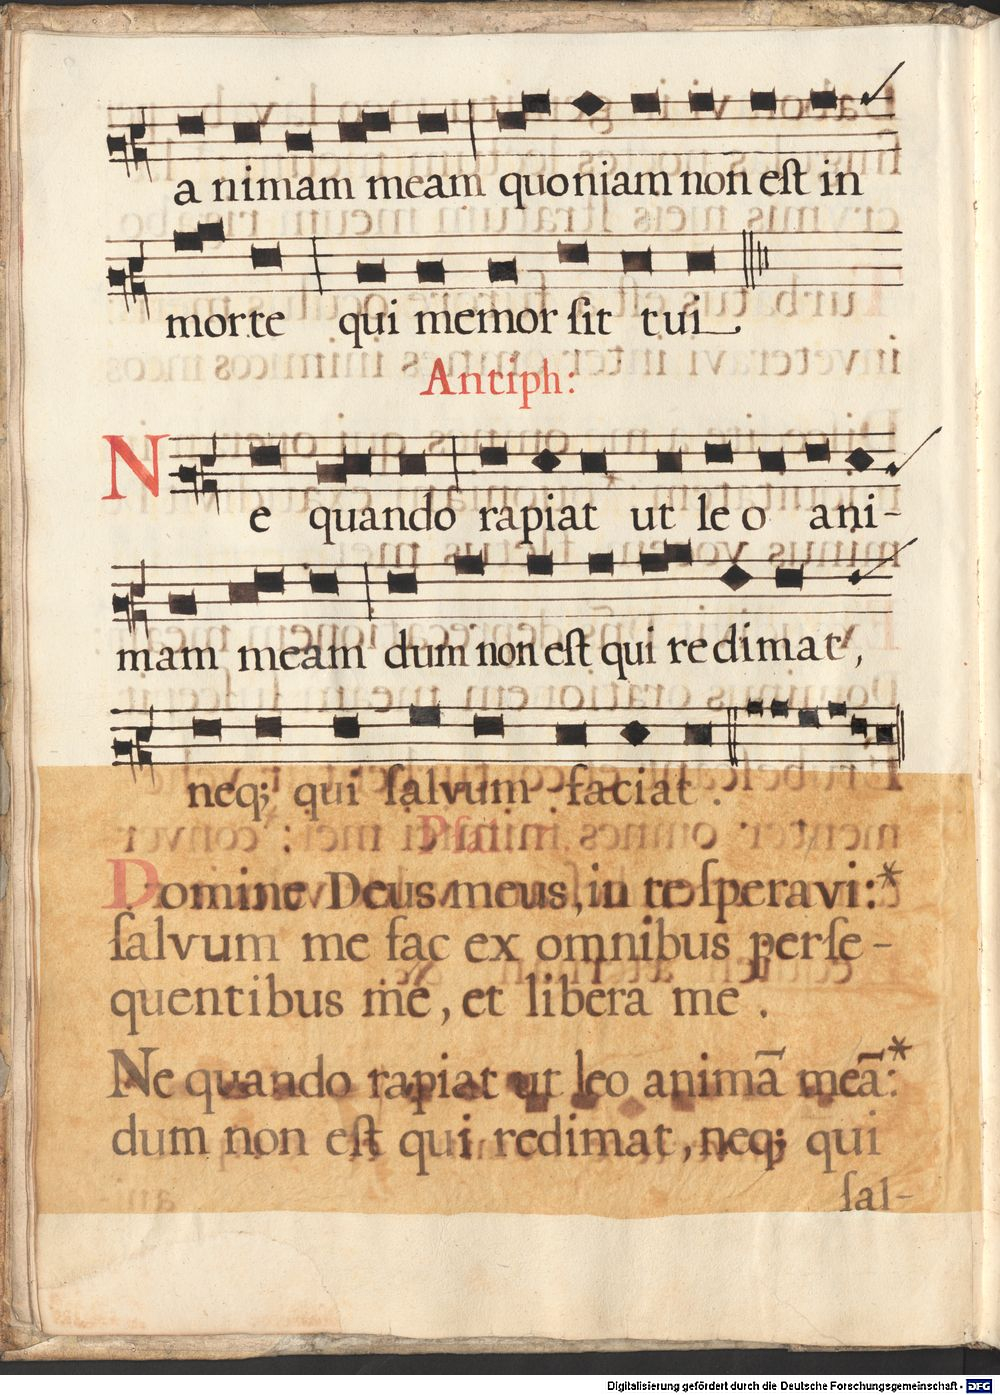 a nimam meam quoniam non est in
morte qui memor sit tui
Antiph:
Ne quando rapiat ut leo ani-
mam meam dum non est qui redimat,
neq; qui salvum faciat.
Psal
Domine Deus meus, in te speravi:*
salvum me fac ex omnibus perse-
quentibus me, et libera me.
Ne quando rapiat ut leo animā meā:*
dum non est qui redimat, neq; qui
sal-
Digitalisierung gefördert durch die Deutsche Forschungsgemeinschaft - DFG